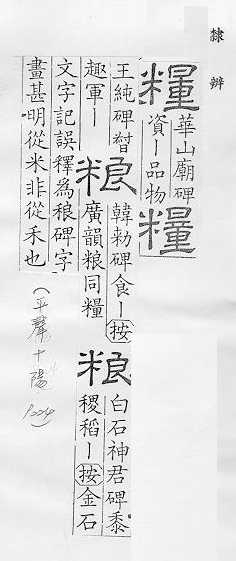 隸辨
糧
華山廟碑
資丨品物
糧
王純碑督
趣軍丨
粮
韓勑碑食丨按
廣韻粮同糧
粮
白石神君碑黍
稷稻丨按金石
文字記誤釋為稂碑字
畫甚明從米非從禾也
(平聲十陽